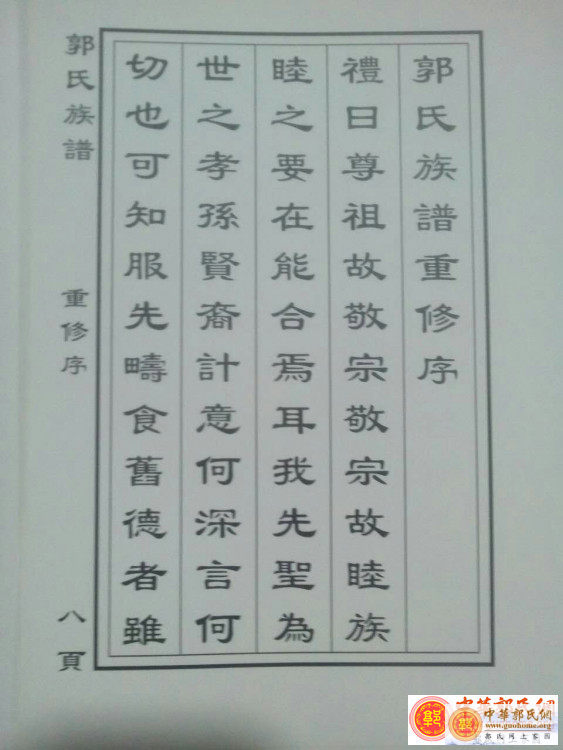 郭氏族譜重修序
禮曰尊祖故敬宗敬宗故睦族
睦之要在能合焉耳我先聖為
世之孝孫賢裔計意何深言何
切也可知服先疇食舊德者雖
郭氏族譜
重修序
八頁
中華郭氏網
www.guohome.org
郭氏网上家园